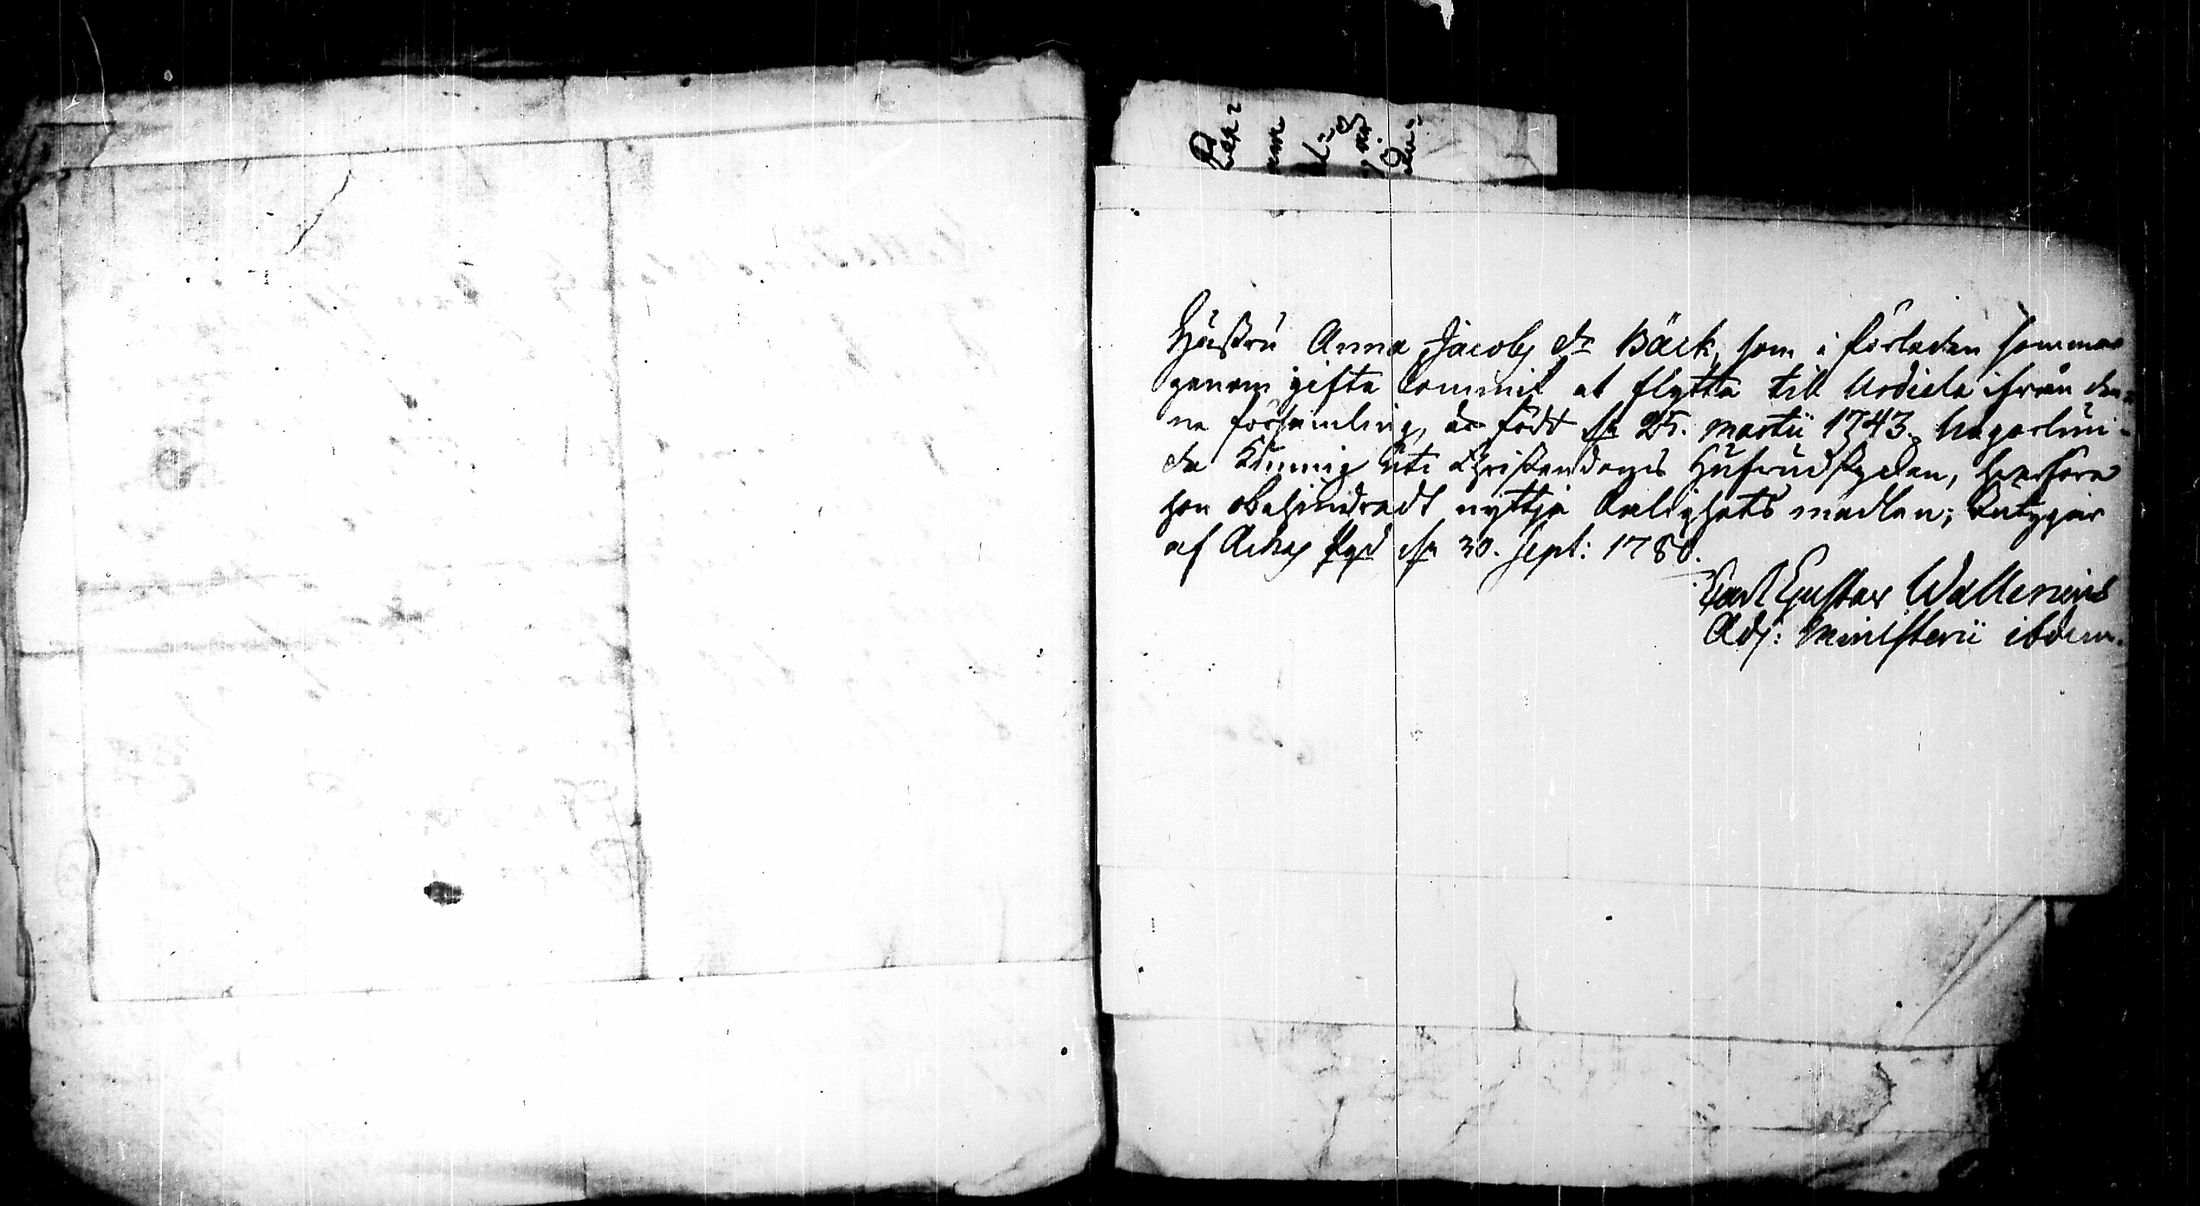 Hustru Anna Jacobs dr Bäck, som i förleden sommar
genom gifte kommit at flytta til Urdiala ifrån den-
na församling, är född d. 25. Martii 1743. Någorlun-
da kunnig uti Christendomens Hufvudstycken, hvarföre
hon obehindradt nyttja Salighets medlen; betygar
af d. 30. Sept: 1780.
Carl Gustav Wallenius
Adj: Ministerii ibdem.